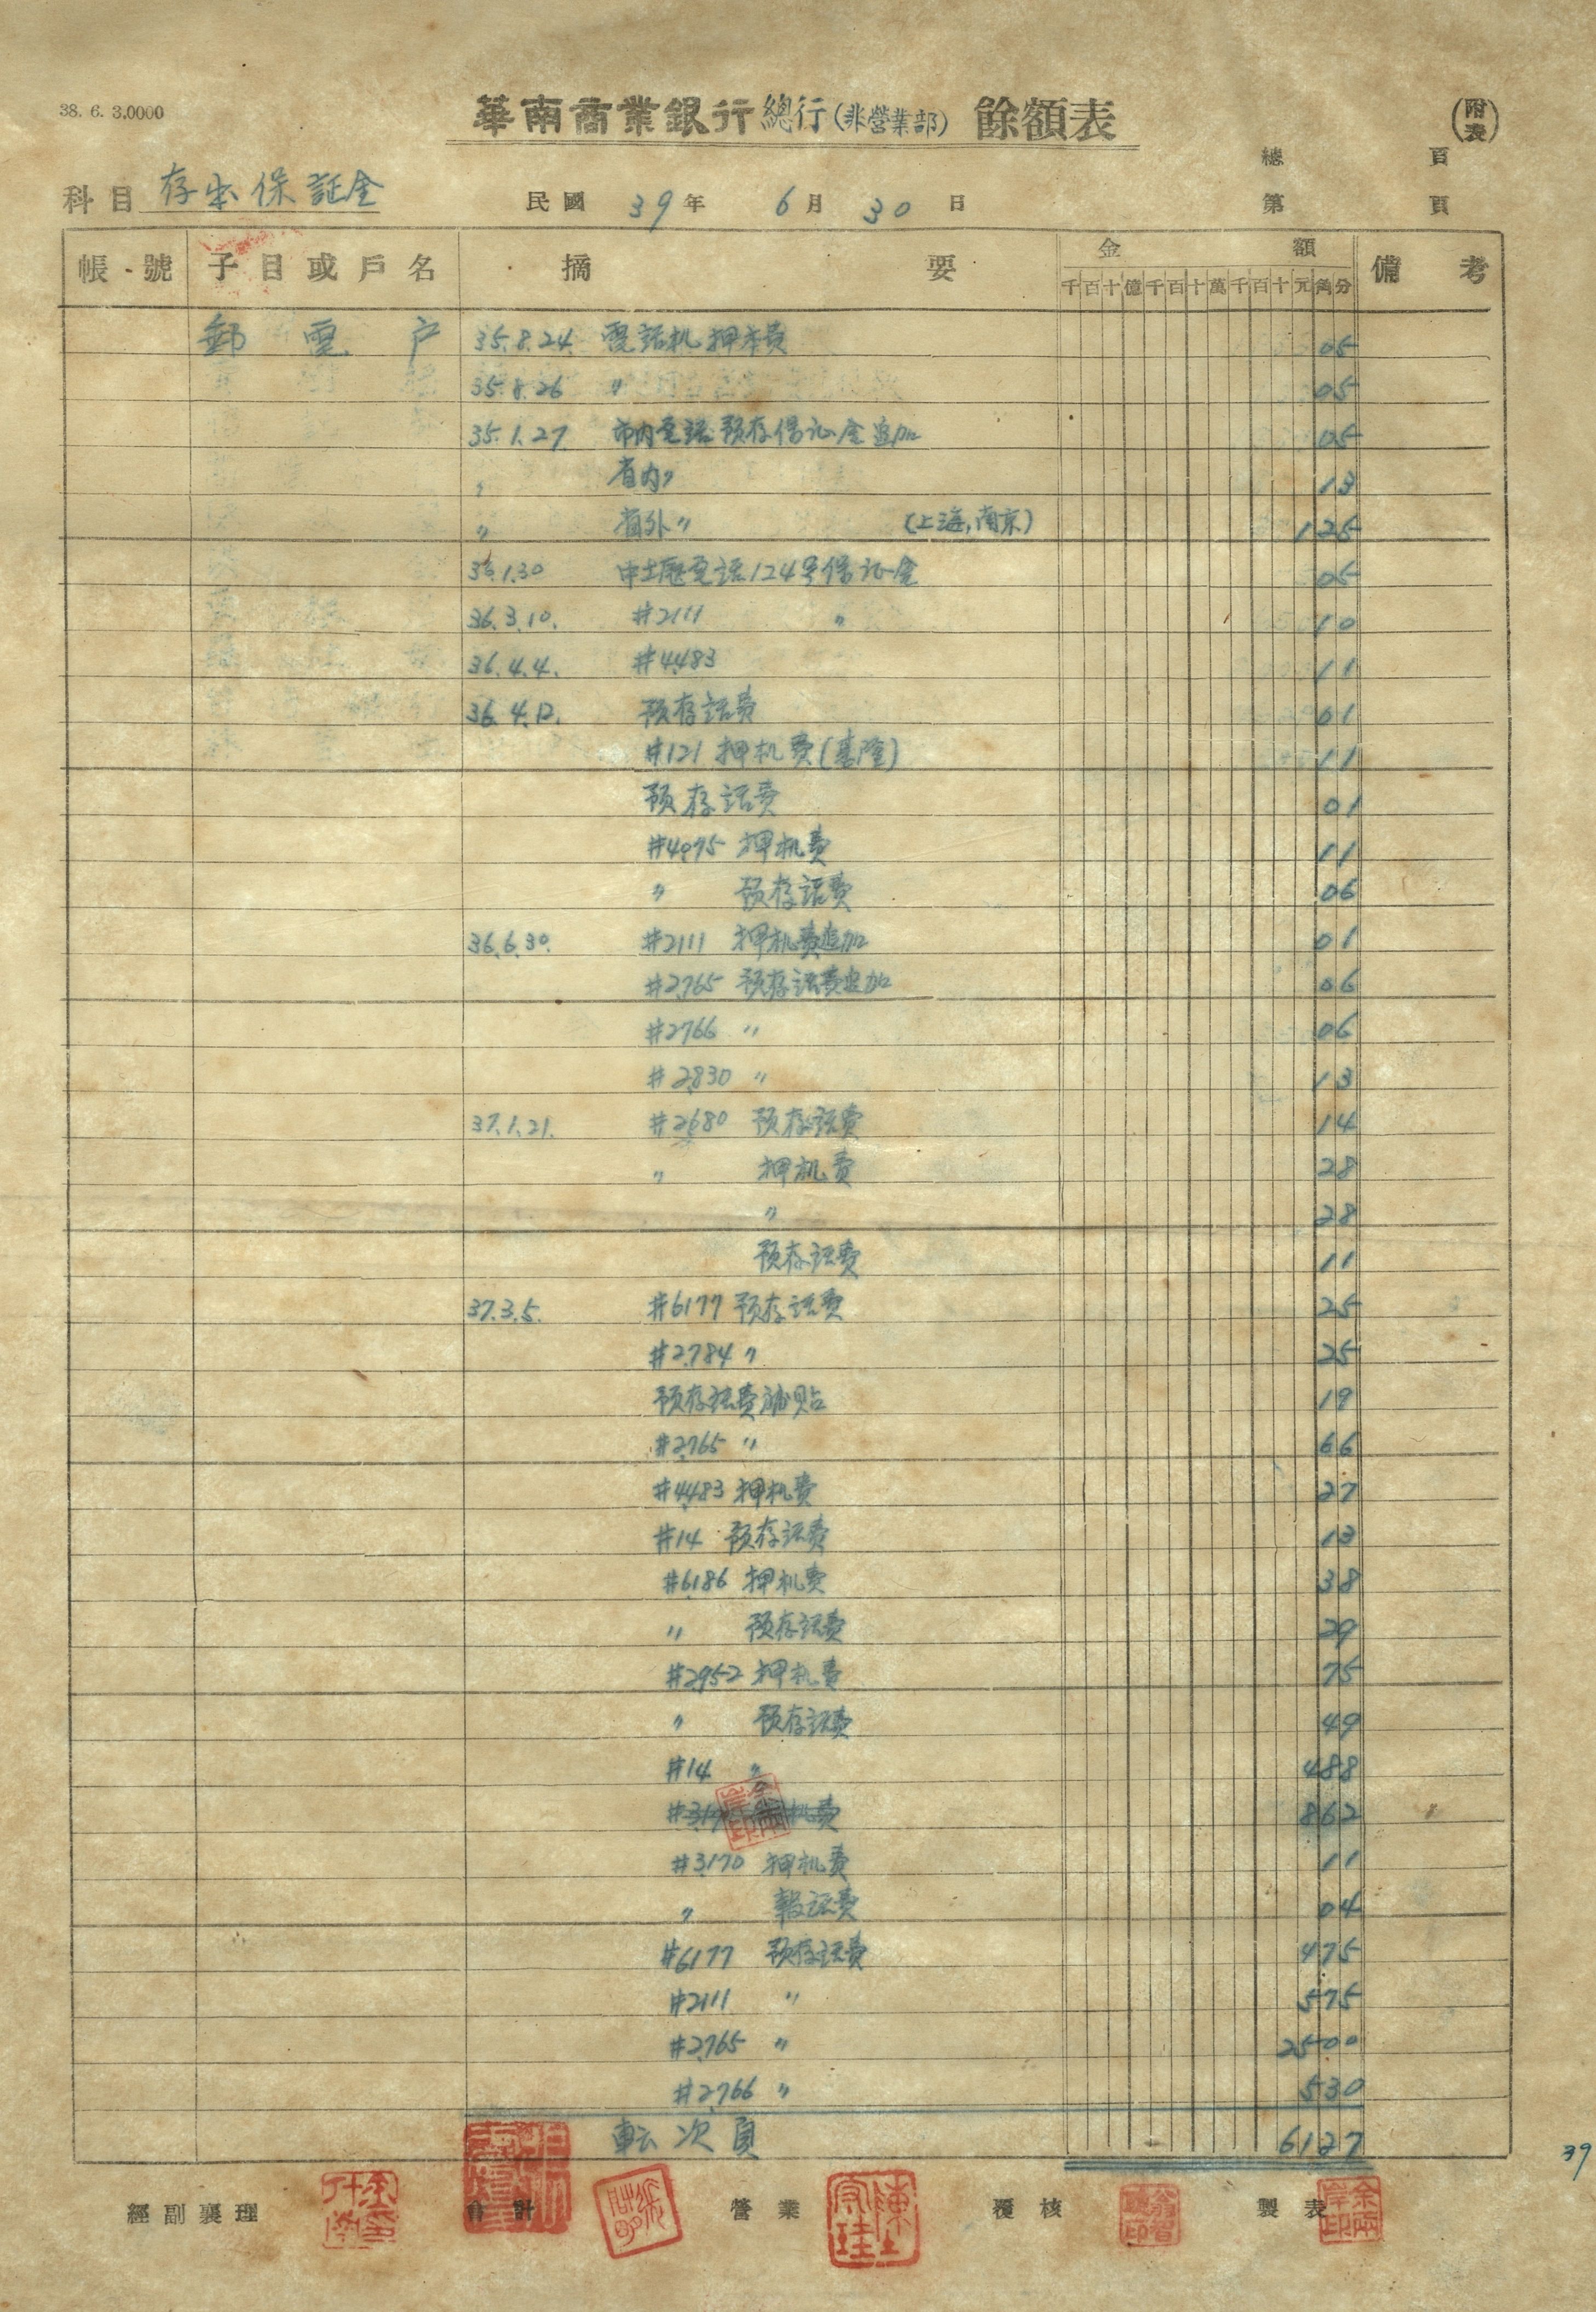 38. 6. 3.0000
華南商業銀行總行(非營業部) 餘額表
(附表)
總 頁
科目 存出保証金 民國 39年 6月 30日 第 頁
帳號 子目或戶名 摘要 金額 備考
千百十億千百十萬千百十元角分
郵電户 35.8.24. 電話机押末員 05
35.8.26 〃 05
35.1.27. 市内電話預存保証金追加 05
〃 省内〃 13
〃 省外〃 (上海,南京) 125
35.1.30 中壢電話124号保証金 05
36.3.10. #2111 〃 10
36.4.4. #4483 11
36.4.12. 預存話费 01
#121 押机費(基隆) 11
預存話费 01
#4075 押机費 11
〃 預存話費 06
36.6.30. #2111 押机費追加 01
#2765 預存話費追加 06
#2766 〃 06
#2830 〃 13
37.1.21. #2680 預存話費 14
〃 押机費 28
〃 28
預存話費 11
37.3.5. #6177 預存話費 25
#2784 〃 25
預存話費補貼 19
#2765 〃 66
#4483 押机費 27
#14 預存話費 13
#6186 押机費 38
〃 預存話費 29
#2952 押机費 75
〃 預存話費 49
#14 〃 488
机費 862
#3170 押机費 11
〃 報話費 04
#6177 預存話費 475
#2111 〃 575
#2765 〃 2500
#2766 〃 530
転次頁 6127
39
經副襄理 會計 營業 覆核 製表